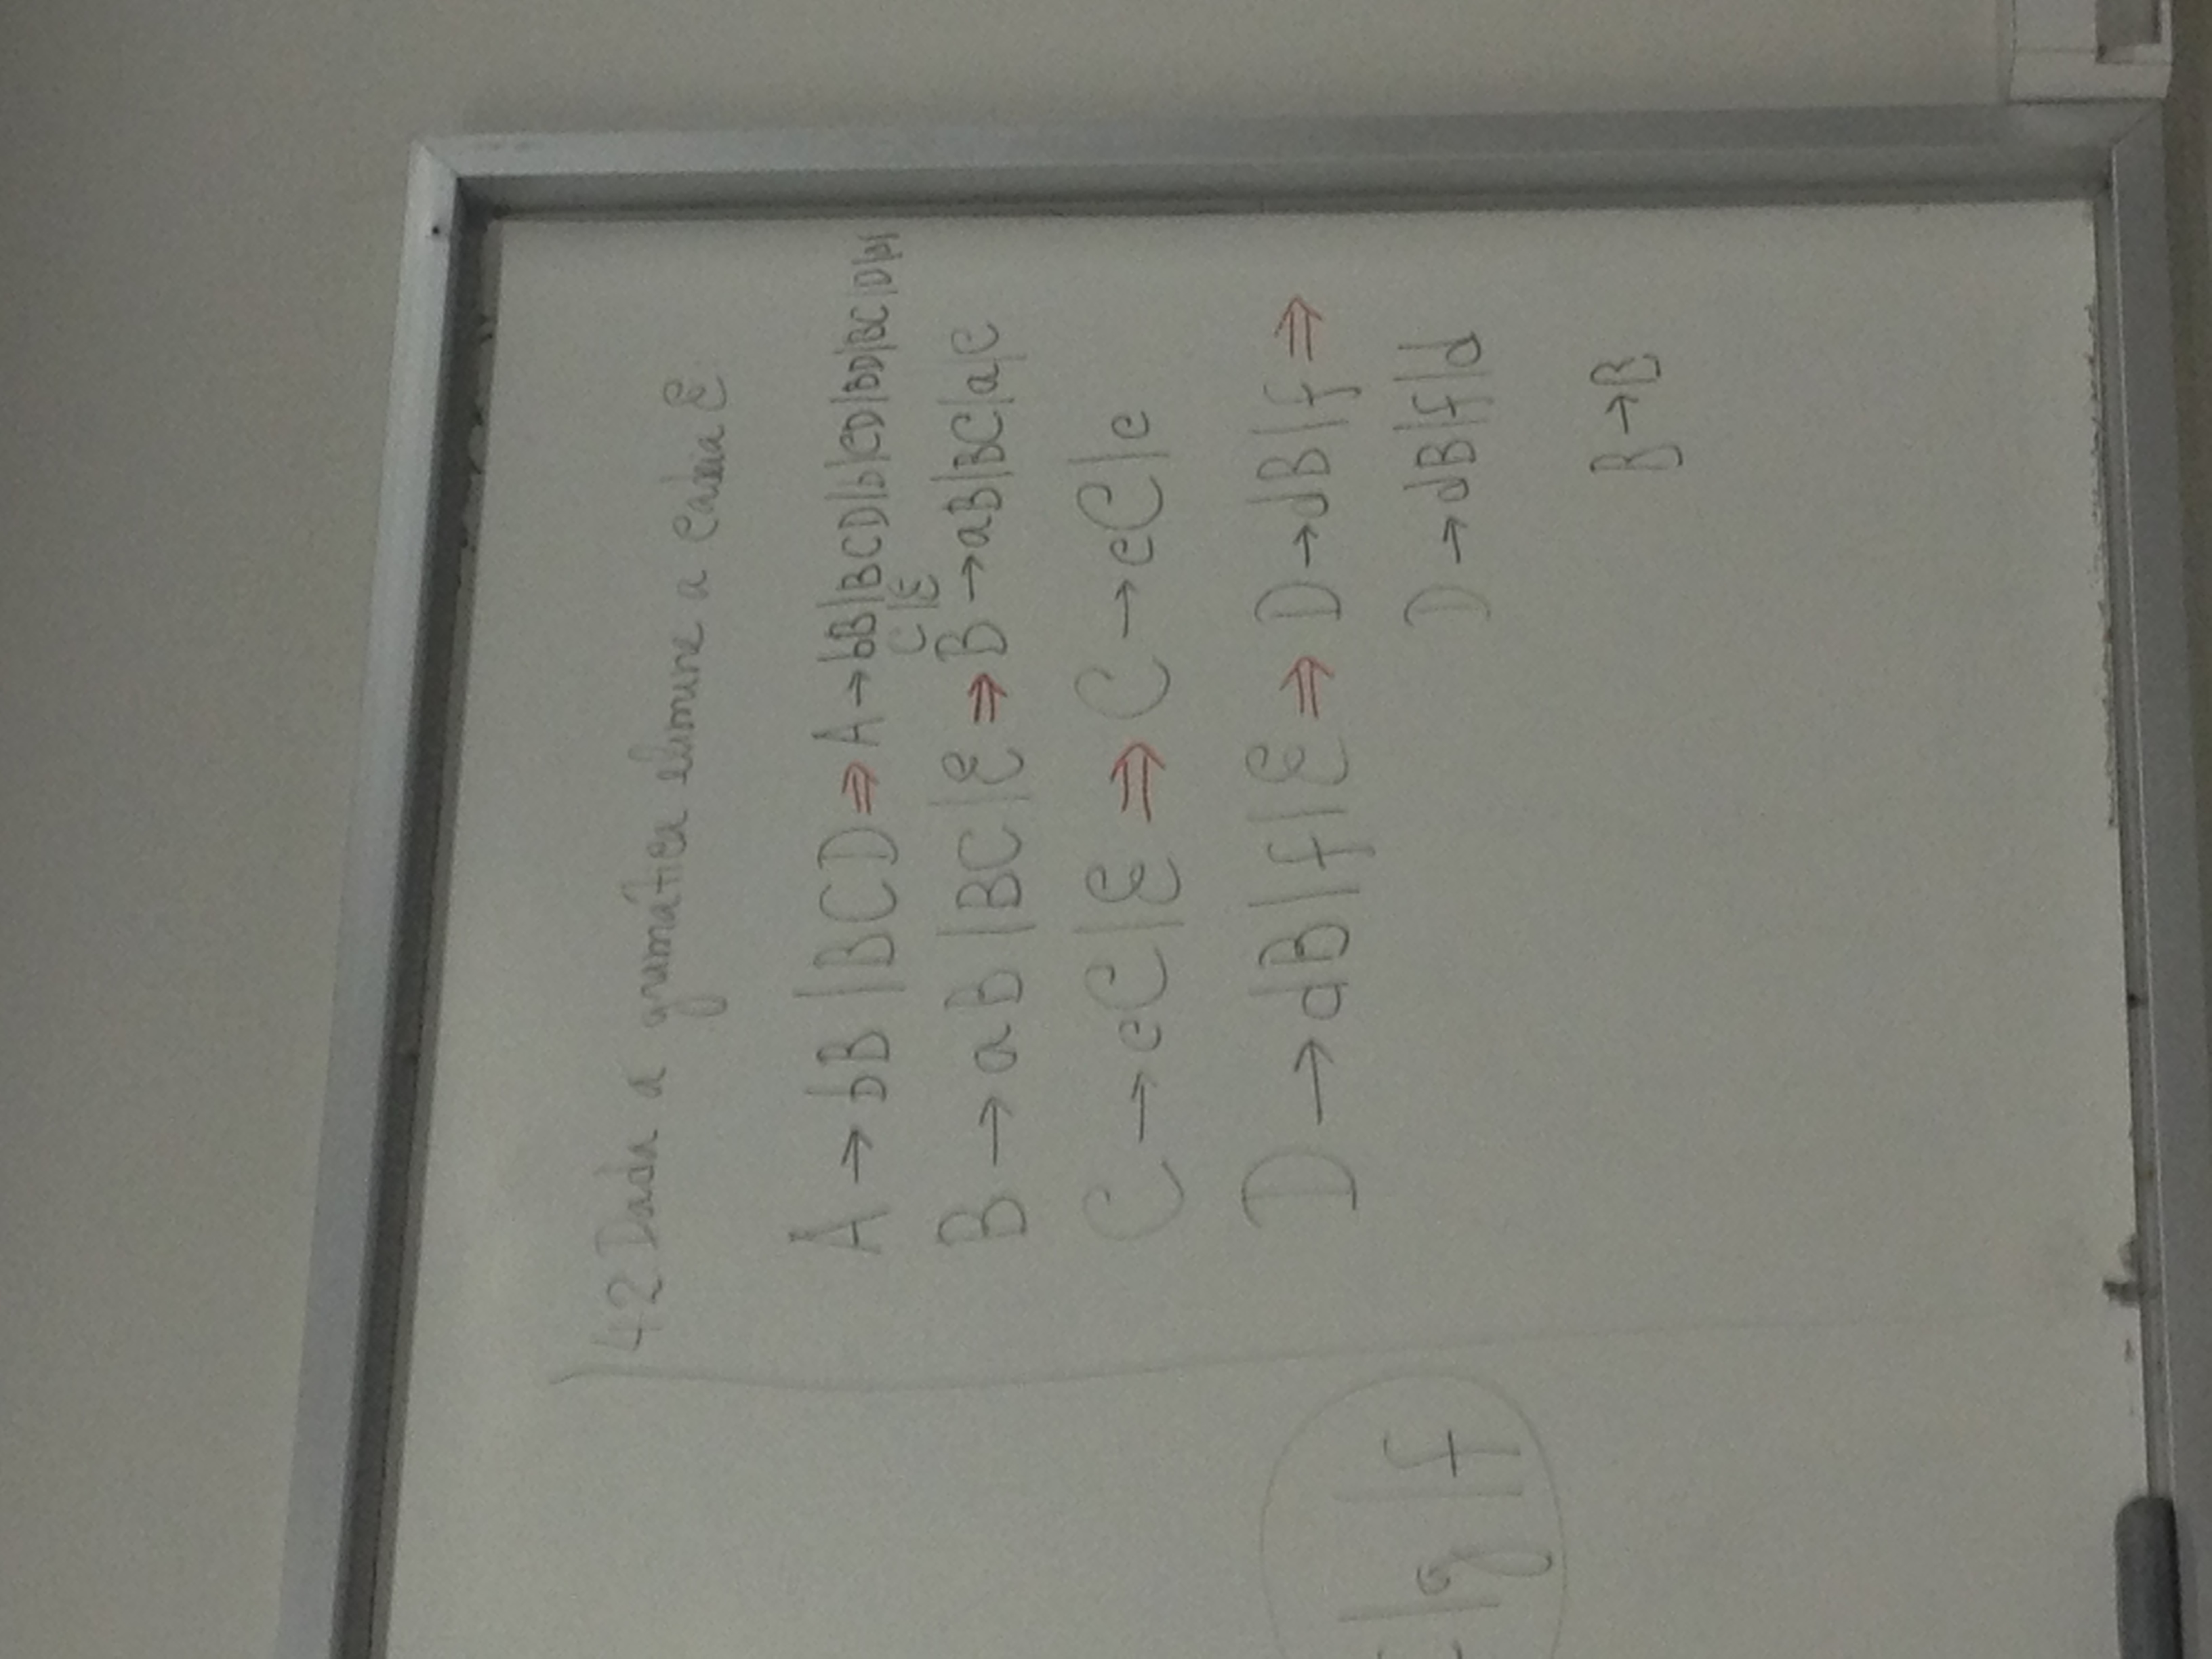 42 Dada a gramática elimine a cadeia ε
A → bB | BCD ⇒ A → bB|BCD|b|CD|BD|BC|D|B|
C|ε
B → aB | BC | ε ⇒ B → aB|BC|a|C
C → cC | ε ⇒ C → cC|c
D → dB | f | ε ⇒ D → dB|f ⇒
|g|f
D → dB|f|d
B → B